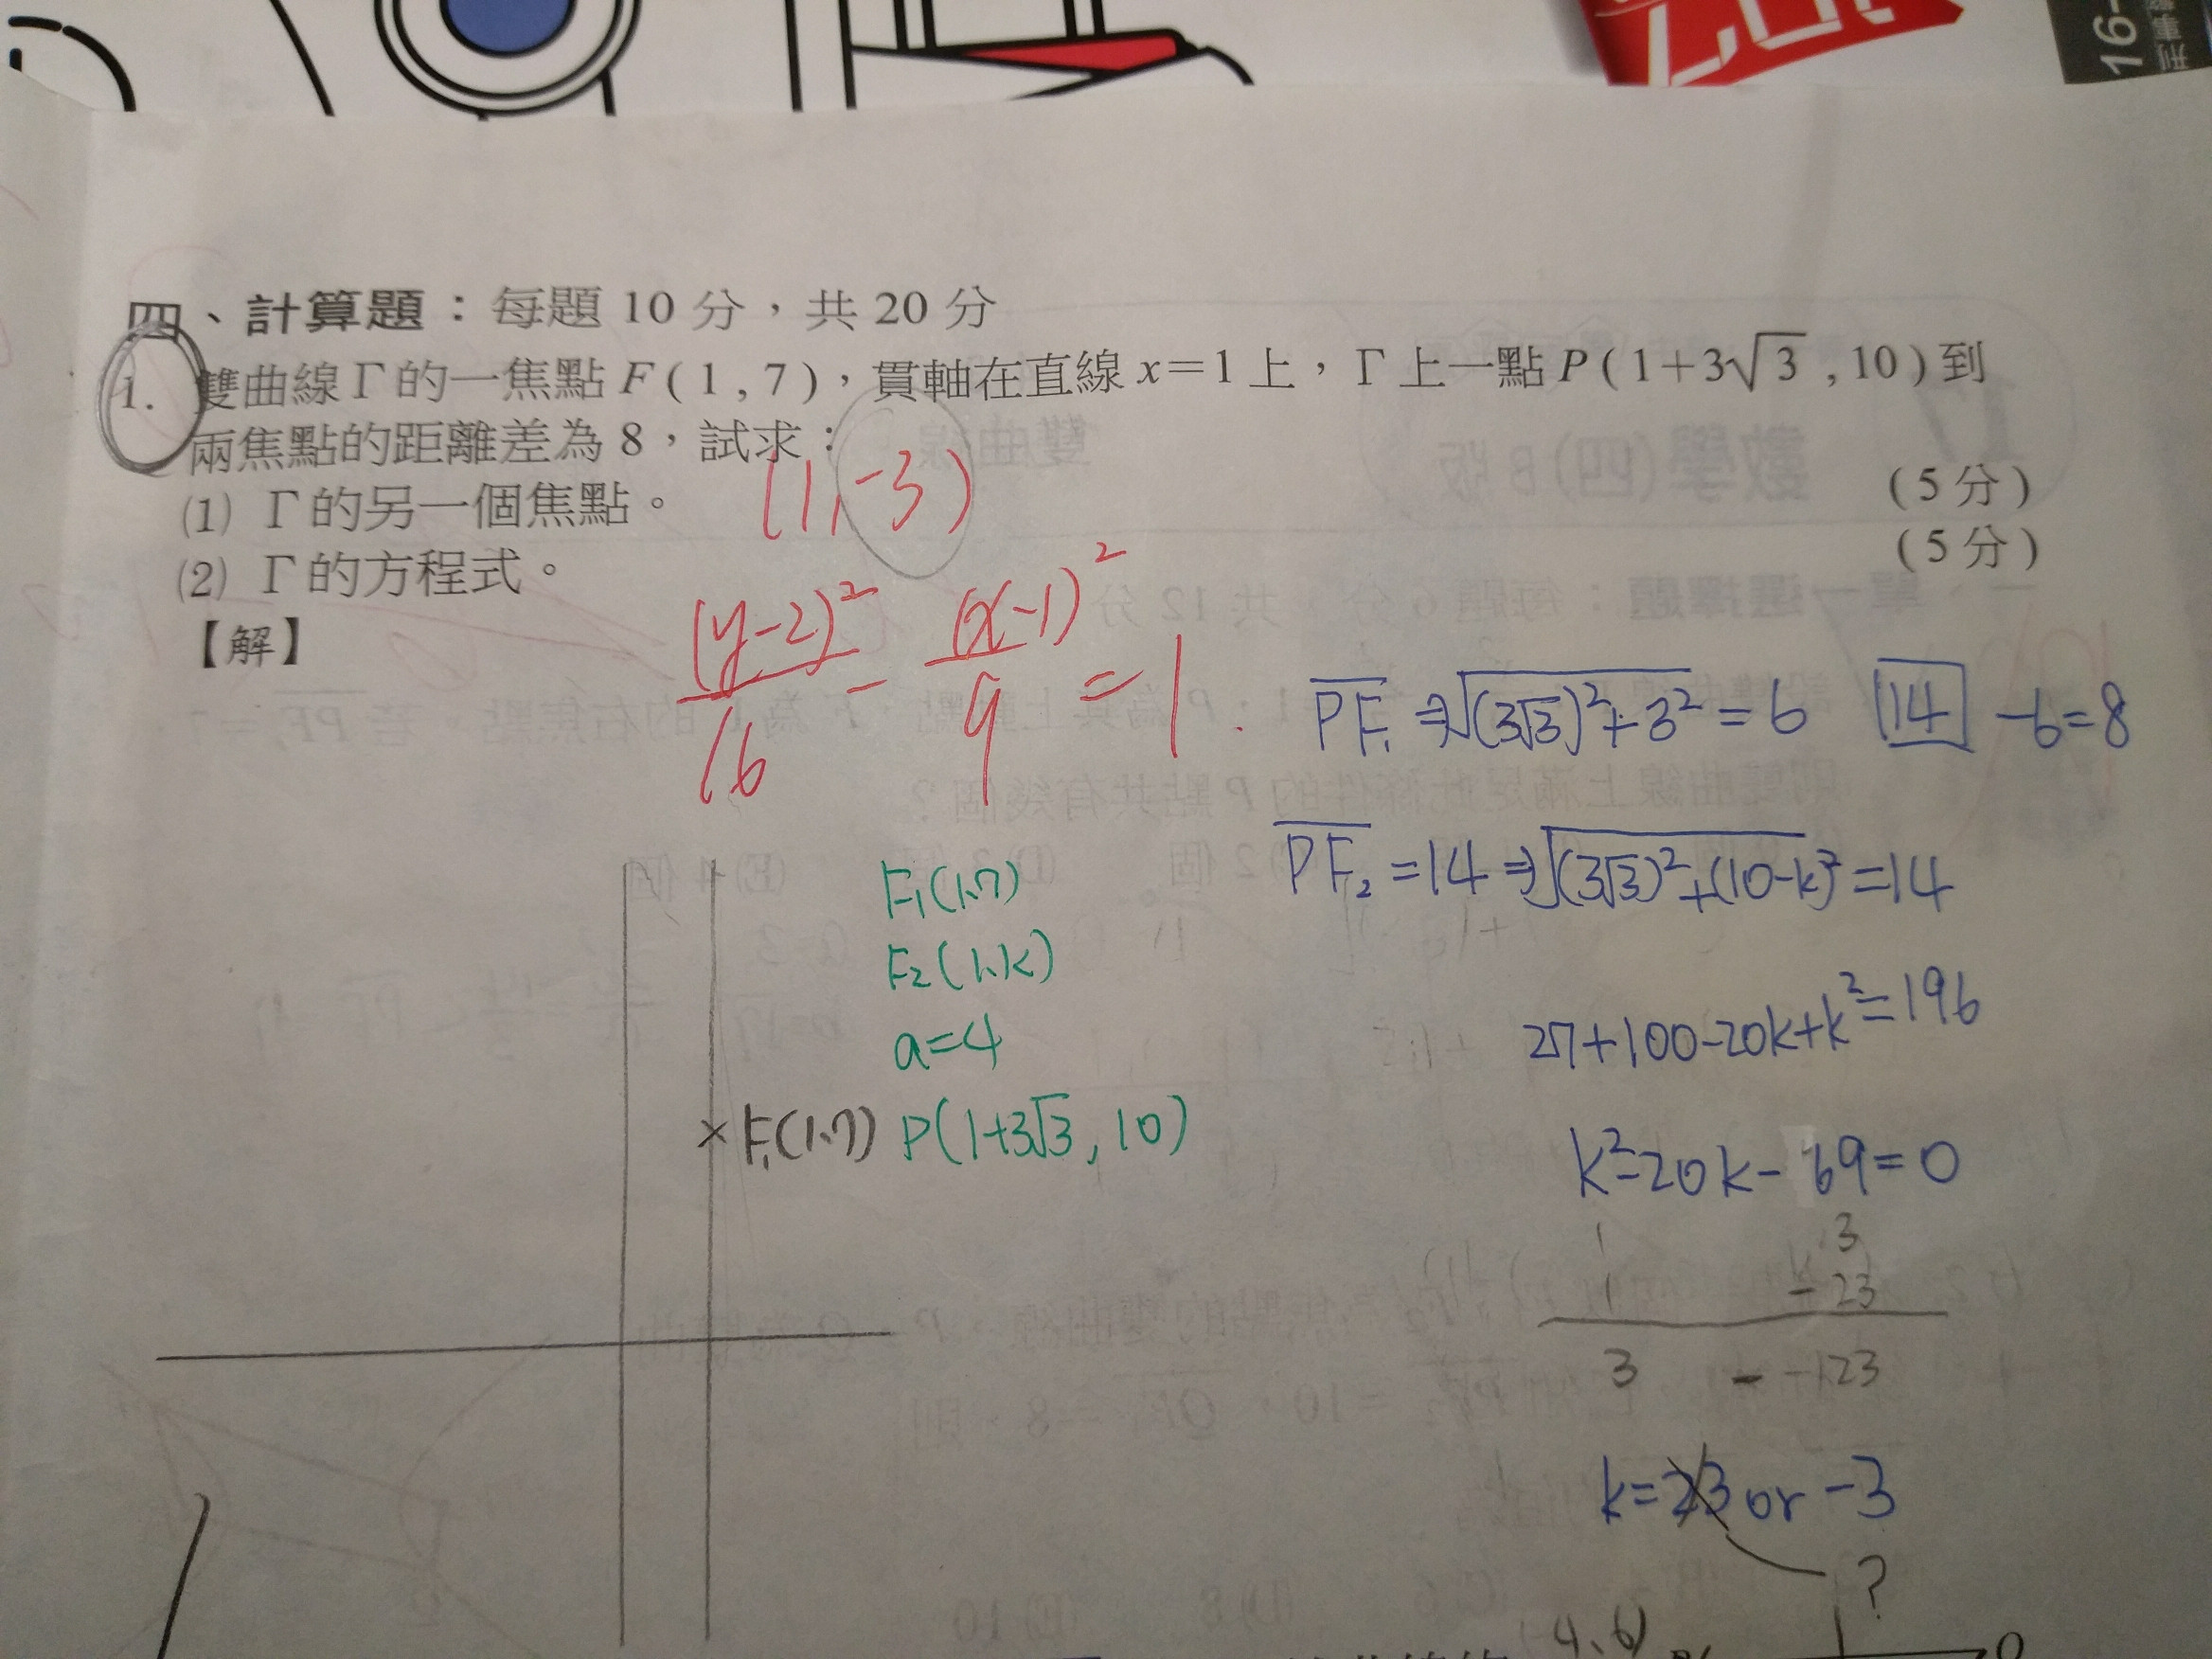 16-
刑事
四、計算題：每題 10 分，共 20 分
1. 雙曲線 Γ 的一焦點 F ( 1 , 7 )，貫軸在直線 x＝1 上，Γ 上一點 P ( 1＋3√3 , 10 ) 到
兩焦點的距離差為 8，試求：
(1) Γ 的另一個焦點。 (1,-3) ( 5 分 )
(2) Γ 的方程式。 ( 5 分 )
【解】
(y-2)²/16 - (x-1)²/9 = 1.
PF₁ ⇒ √((3√3)²+3²) = 6 14 -6=8
PF₂ =14 ⇒ √((3√3)²+(10-k)²) =14
F₁(1,7)
F₂(1,k)
a=4
F₁(1,7) P(1+3√3, 10)
27+100-20k+k²=196
k²-20k-69=0
1 3
1 -23
3 - -123
k=23 or -3
?
4、6)